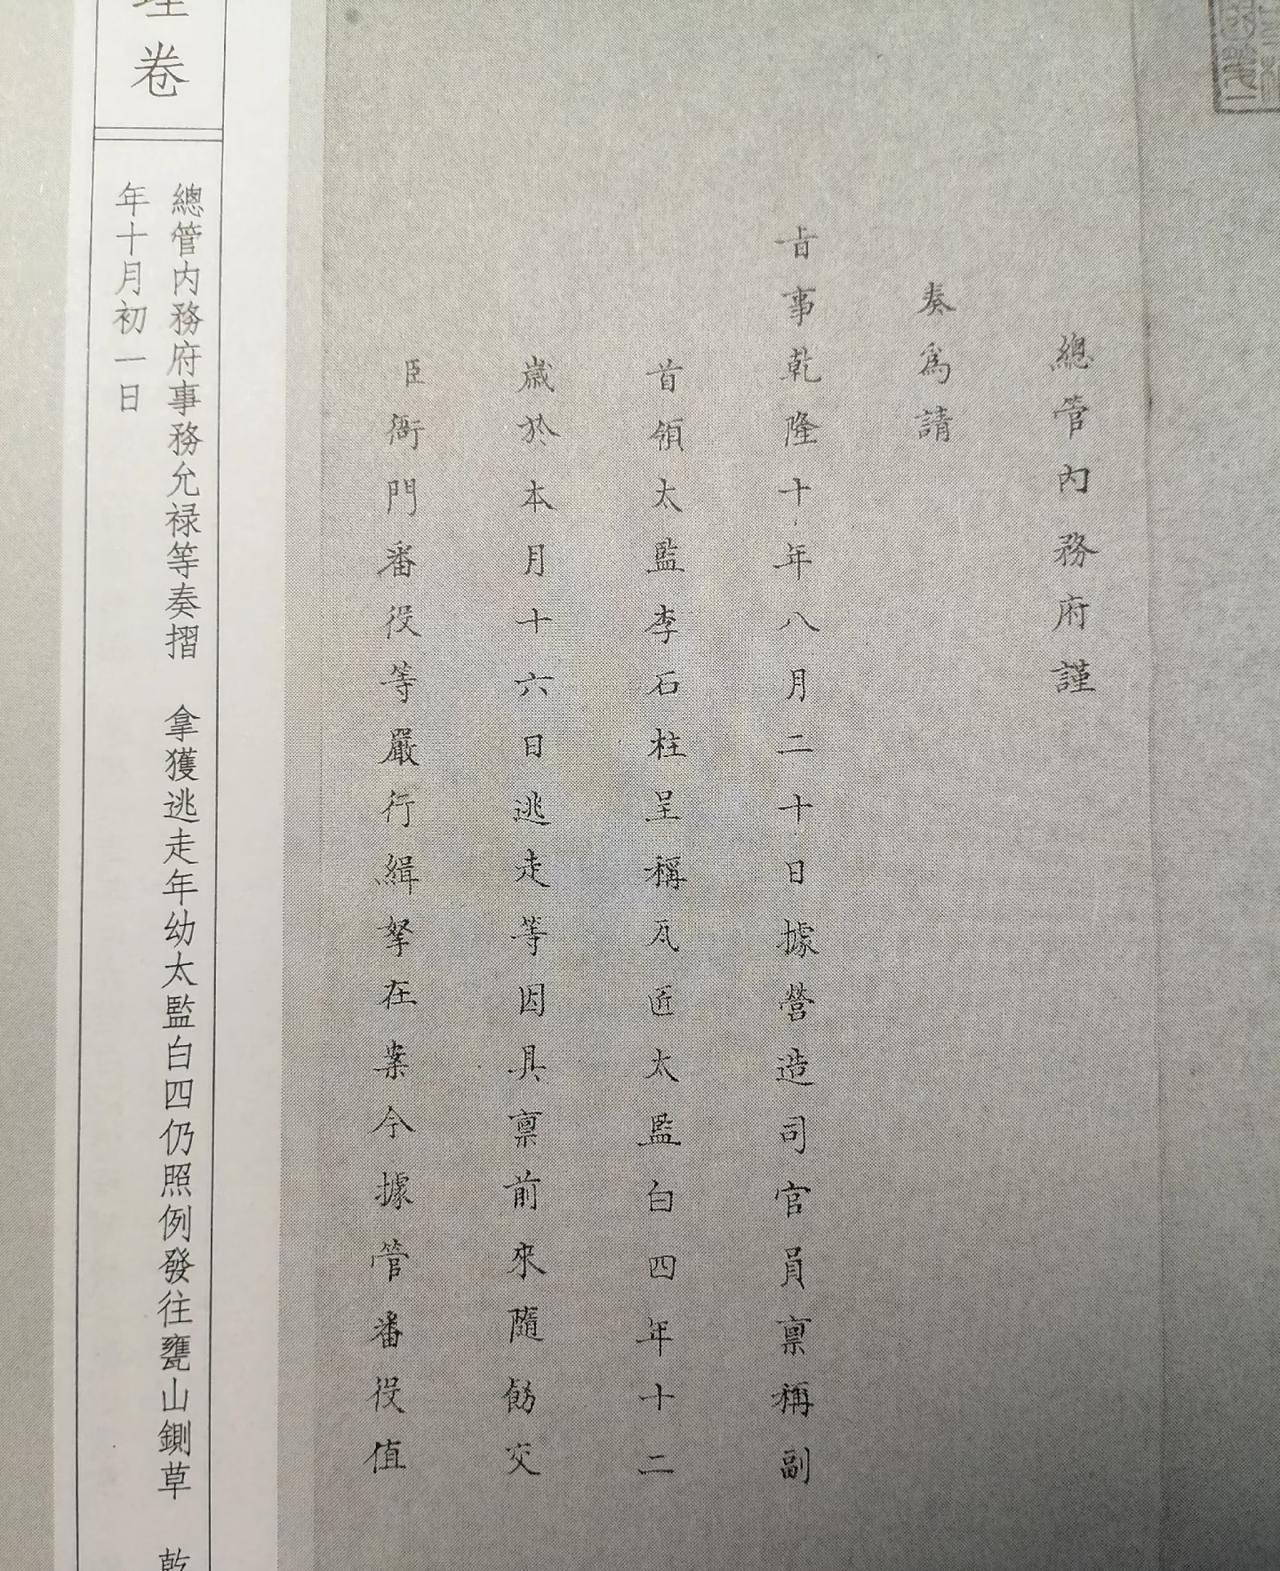 總管內務府謹
奏為請
旨事乾隆十年八月二十日據營造司官員禀稱副
首領太監李石柱呈稱瓦匠太監白四年十二
歲於本月十六日逃走等因具禀前來隨飭交
臣衙門番役等嚴行緝拏在案今據管番役值
理卷
總管内務府事務允禄等奏摺 拿獲逃走年幼太監白四仍照例發往甕山鍘草 乾
年十月初一日